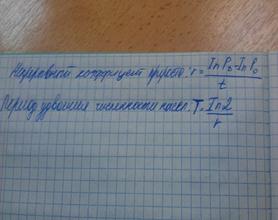 Непрерывный коэффициент прироста: r = (ln Pt - ln P0) / t
Период удвоения численности насел. T = ln 2 / r